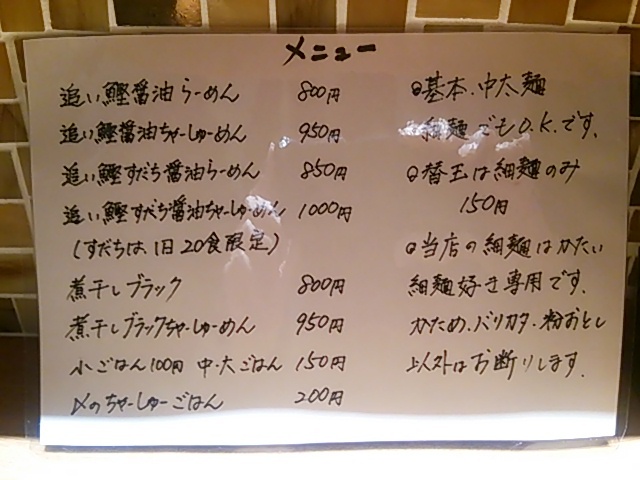 メニュー
追い鰹醤油らーめん 800円
追い鰹醤油ちゃーしゅーめん 950円
追い鰹すだち醤油らーめん 850円
追い鰹すだち醤油ちゃーしゅーめん 1000円
(すだちは、1日20食限定)
煮干しブラック 800円
煮干しブラックちゃーしゅーめん 950円
小ごはん100円 中・大ごはん 150円
〆のちゃーしゅーごはん 200円
◎基本、中太麺
細麺でもO.K.です、
◎替玉は細麺のみ
150円
◎当店の細麺はかたい
細麺好き専用です、
かため、バリカタ、粉おとし
以外はお断りします、